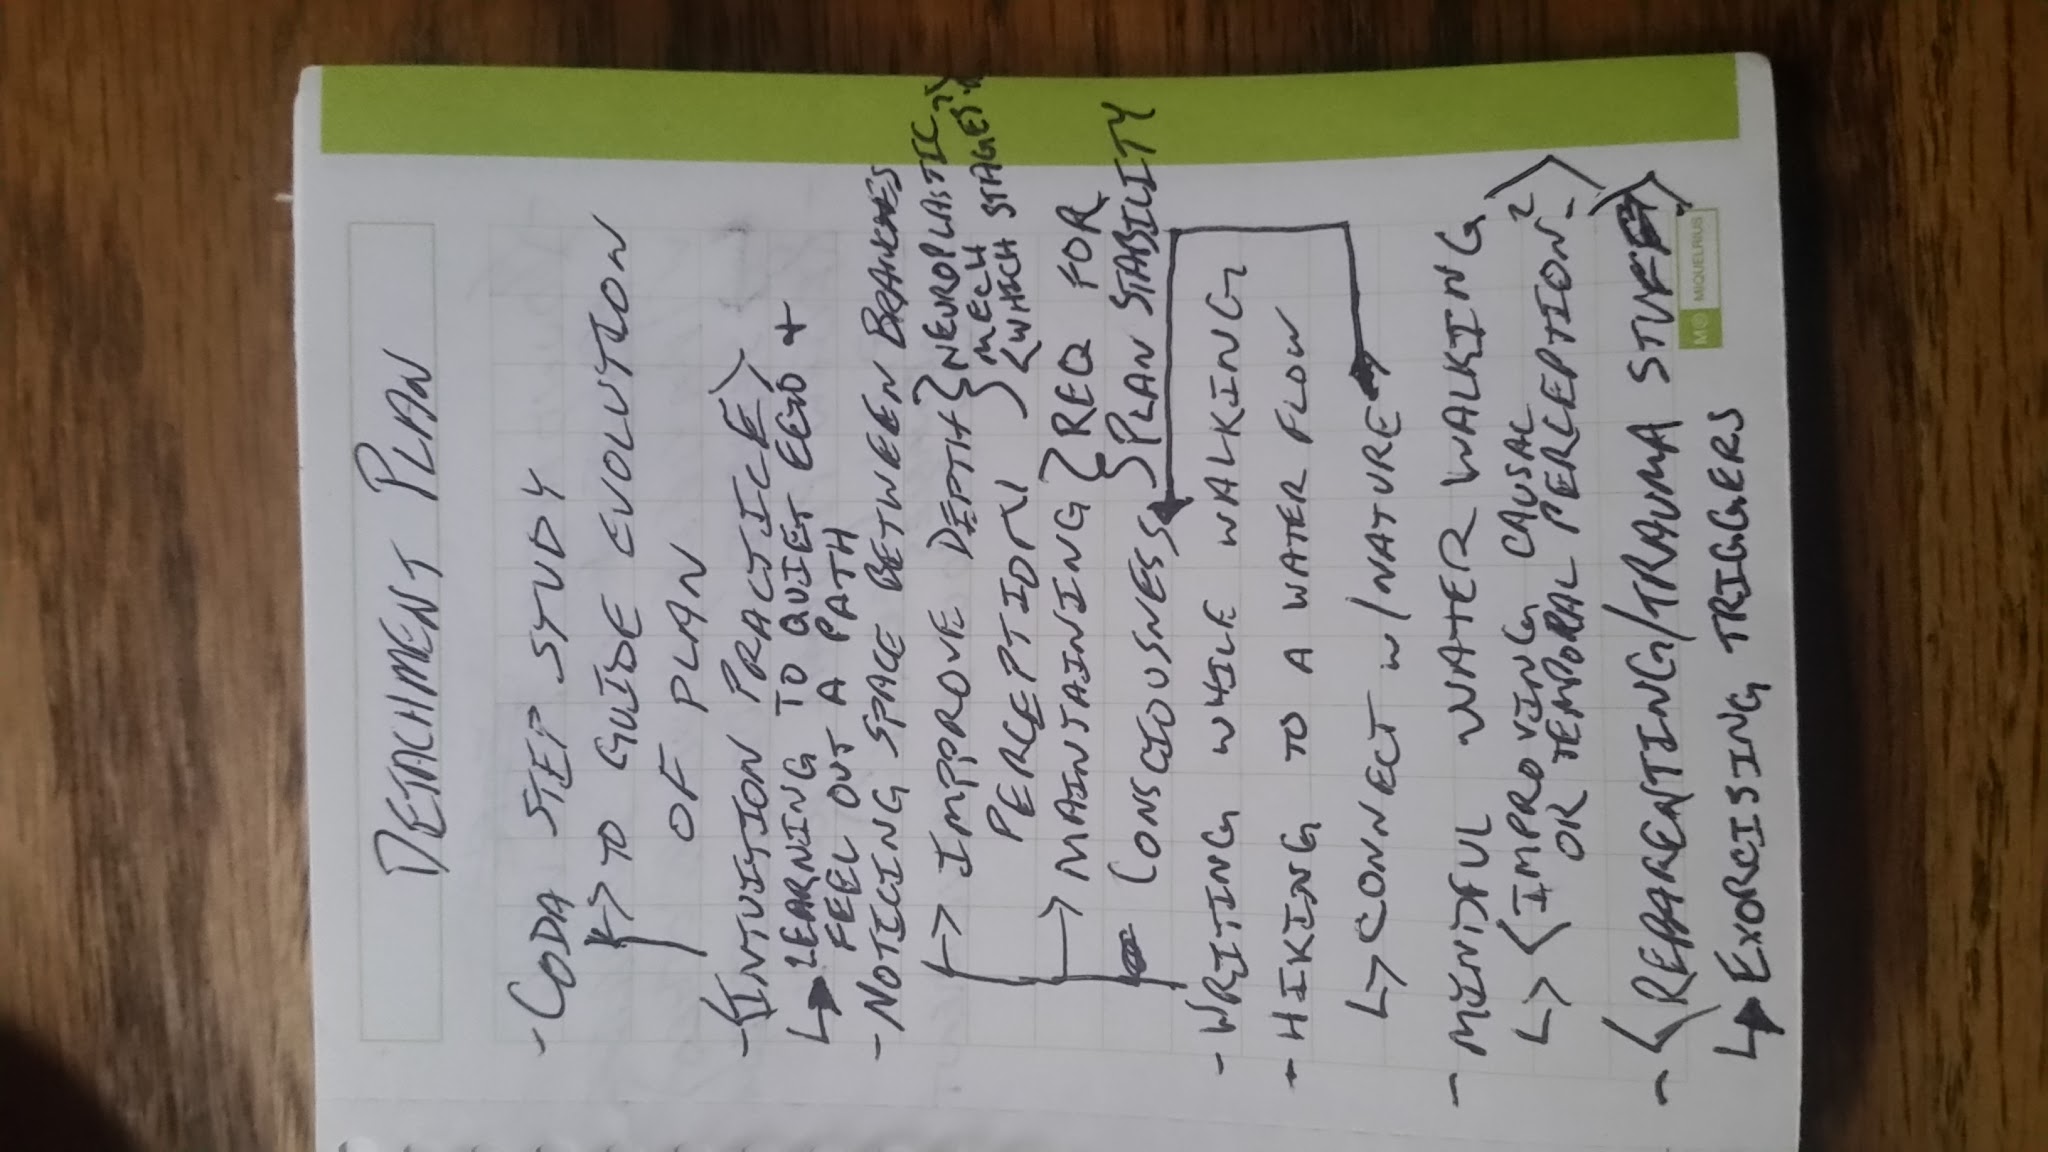 DETACHMENT PLAN
- CODA STEP STUDY
↳> TO GUIDE EVOLUTION
OF PLAN
- <INTUITION PRACTICE>
↳ LEARNING TO QUIET EGO +
FEEL OUT A PATH
- NOTICING SPACE BETWEEN BRANCHES
→ IMPPROVE DEPTH } NEUROPLASTIC
PERCEPTION } MECH
<WHICH STAGE?>
→ MAINTAINING } REQ FOR
CONSCIOUSNESS } PLAN STABILITY
- WRITING WHILE WALKING
- HIKING TO A WATER FLOW
↳ CONNECT W/NATURE
- MINDFUL WATER WALKING
↳ <IMPROVING CAUSAL
OR TEMPORAL PERCEPTION?>
- <REPARENTING/TRAUMA STUFF>
↳ EXORCISING TRIGGERS
M® MIQUELRIUS